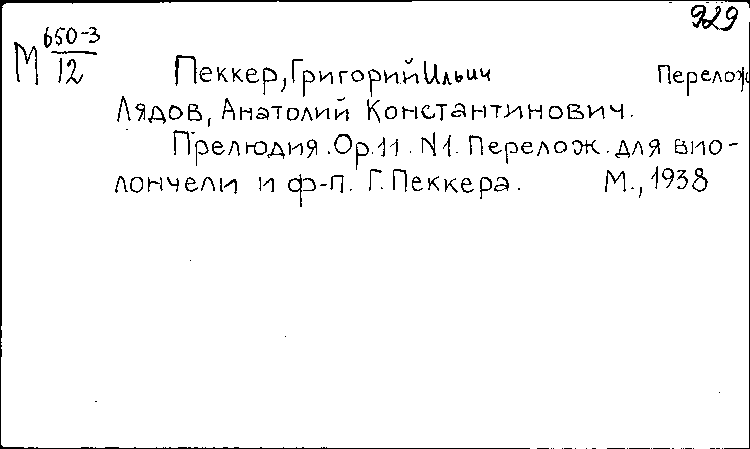 929
М 650-3/12
Пеккер, Григорий Ильич Перелож
Лядов, Анатолий Константинович.
Прелюдия. Op. 11. N1. Перелож. для вио-
лончели и ф-п. Г. Пеккера. М., 1938